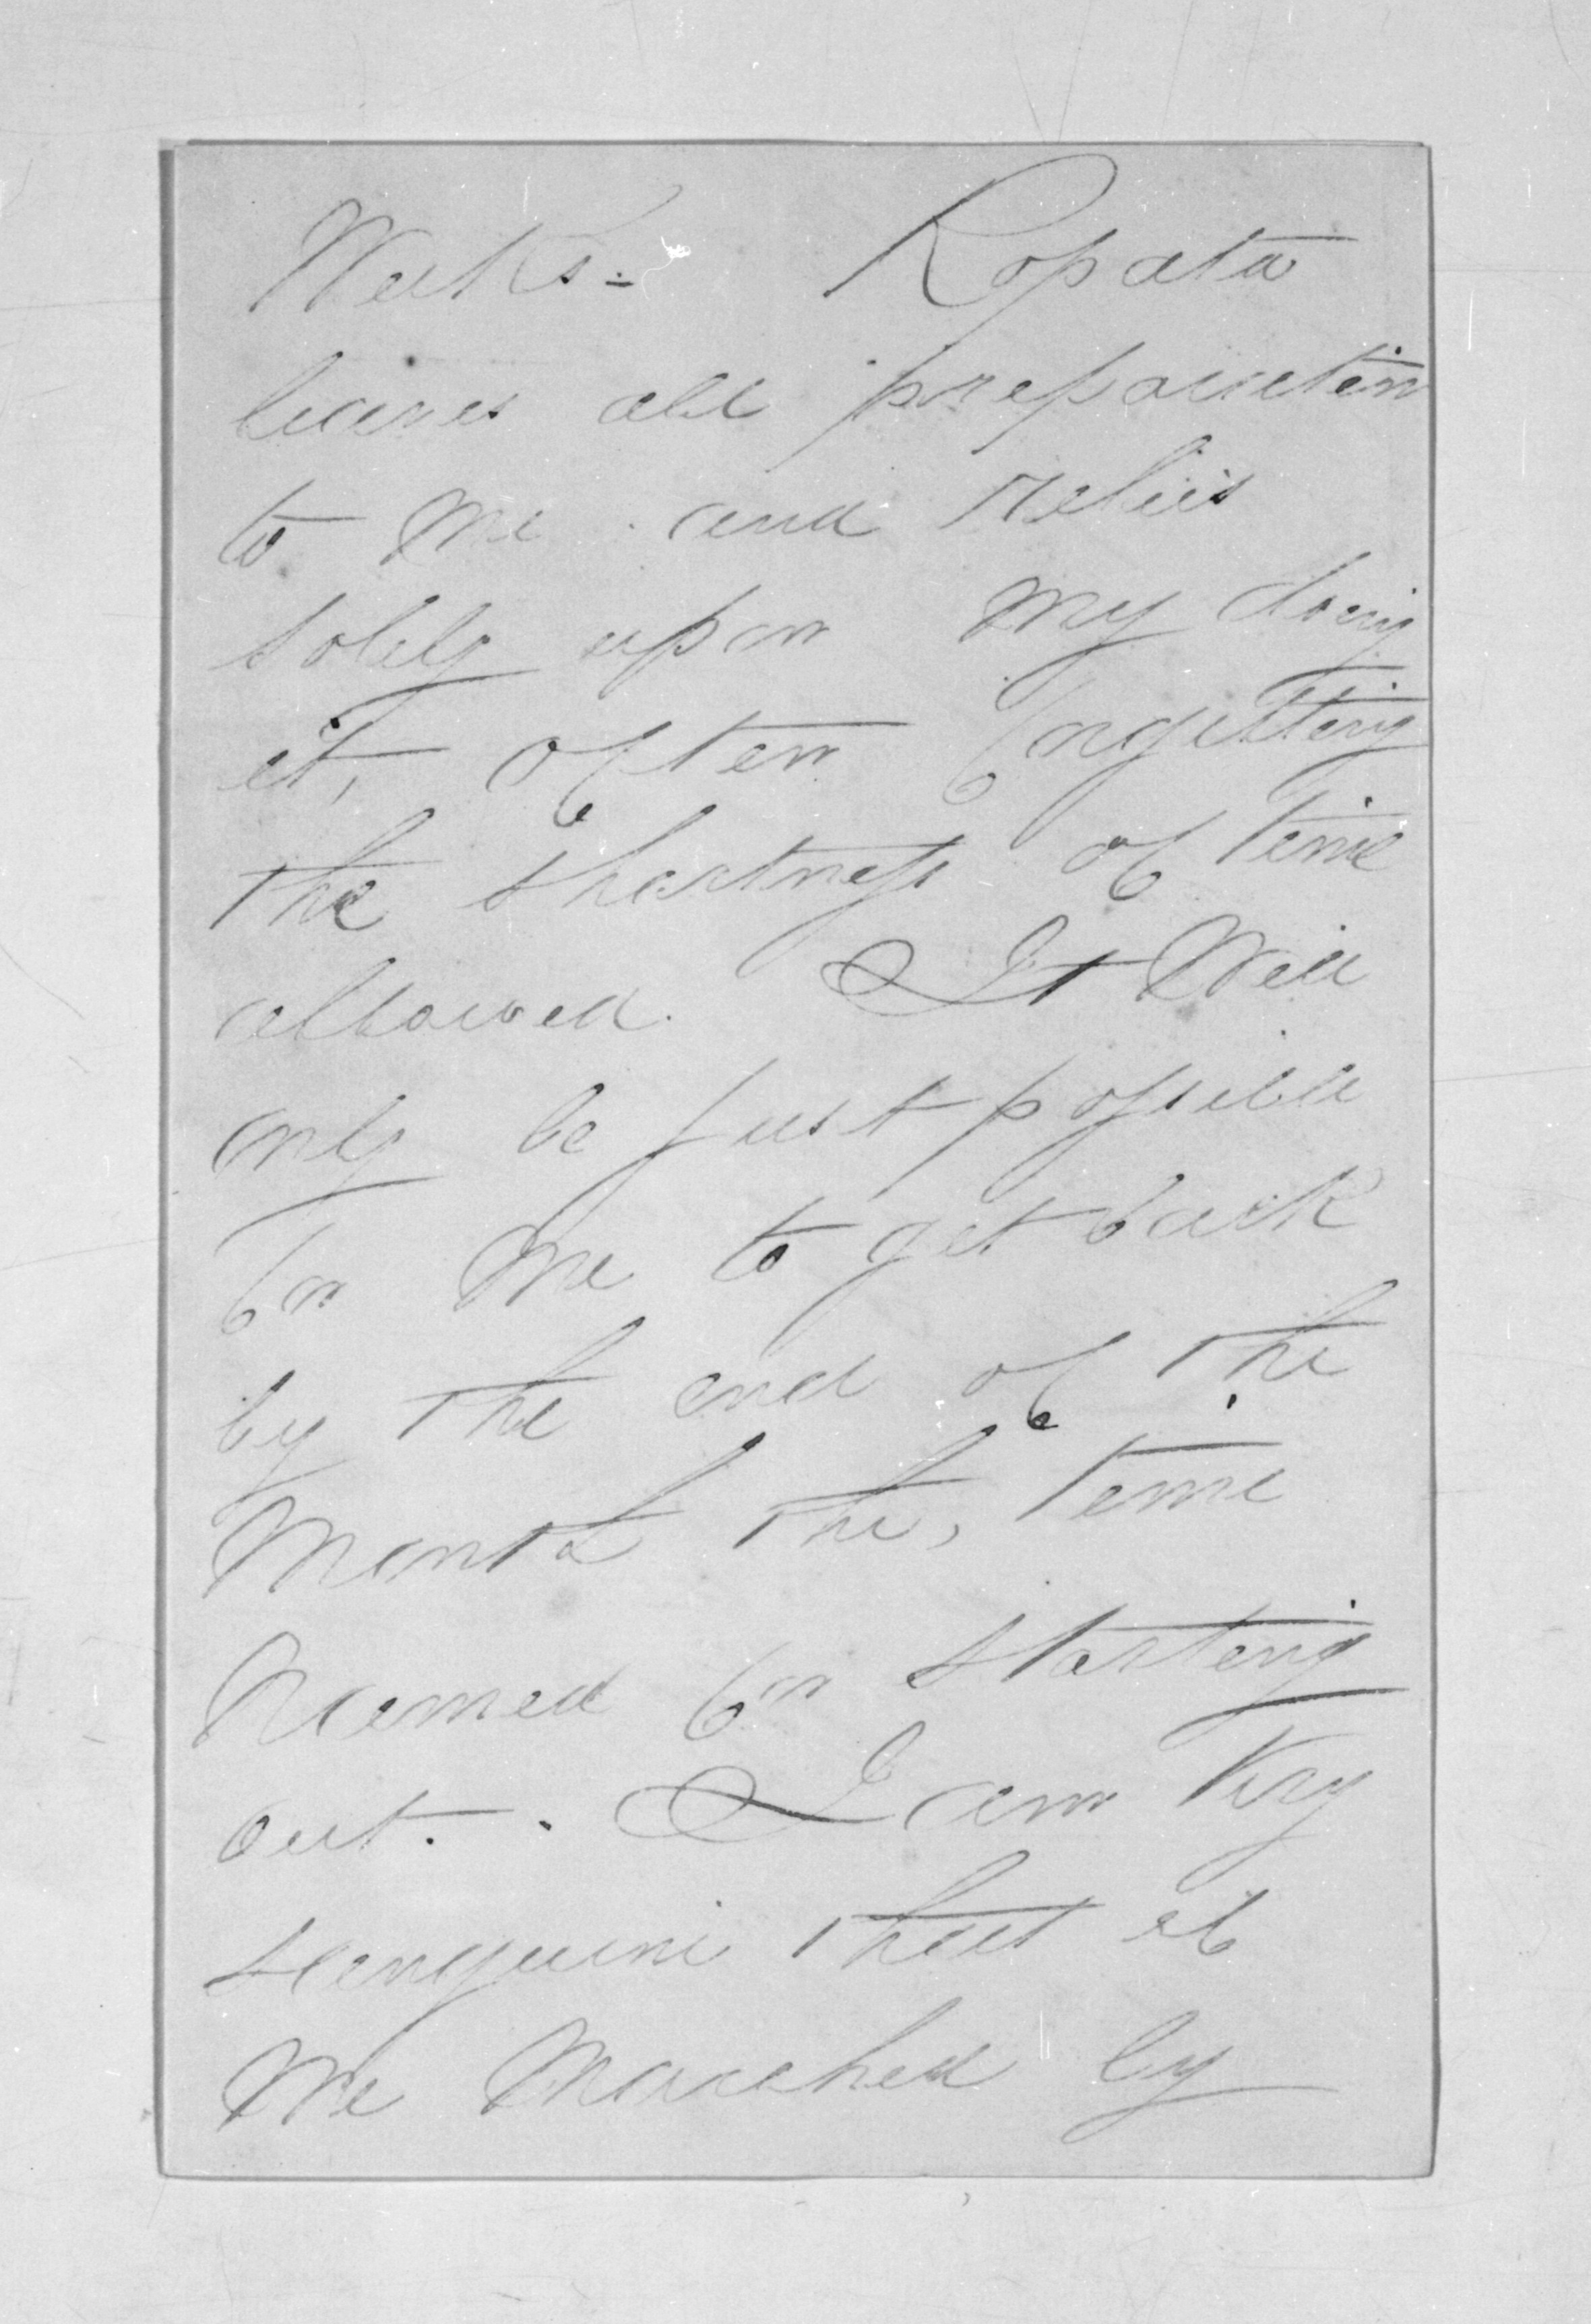 Weeks. Ropata
leaves all preparation
to me and relies
solely upon my doing
it, often forgetting
the shortness of time
allowed. It Will
only be just possible
for me to get back
by the end of the
Month the, time
Named for starting
out. I am Very
sanguine that if
We Marched by